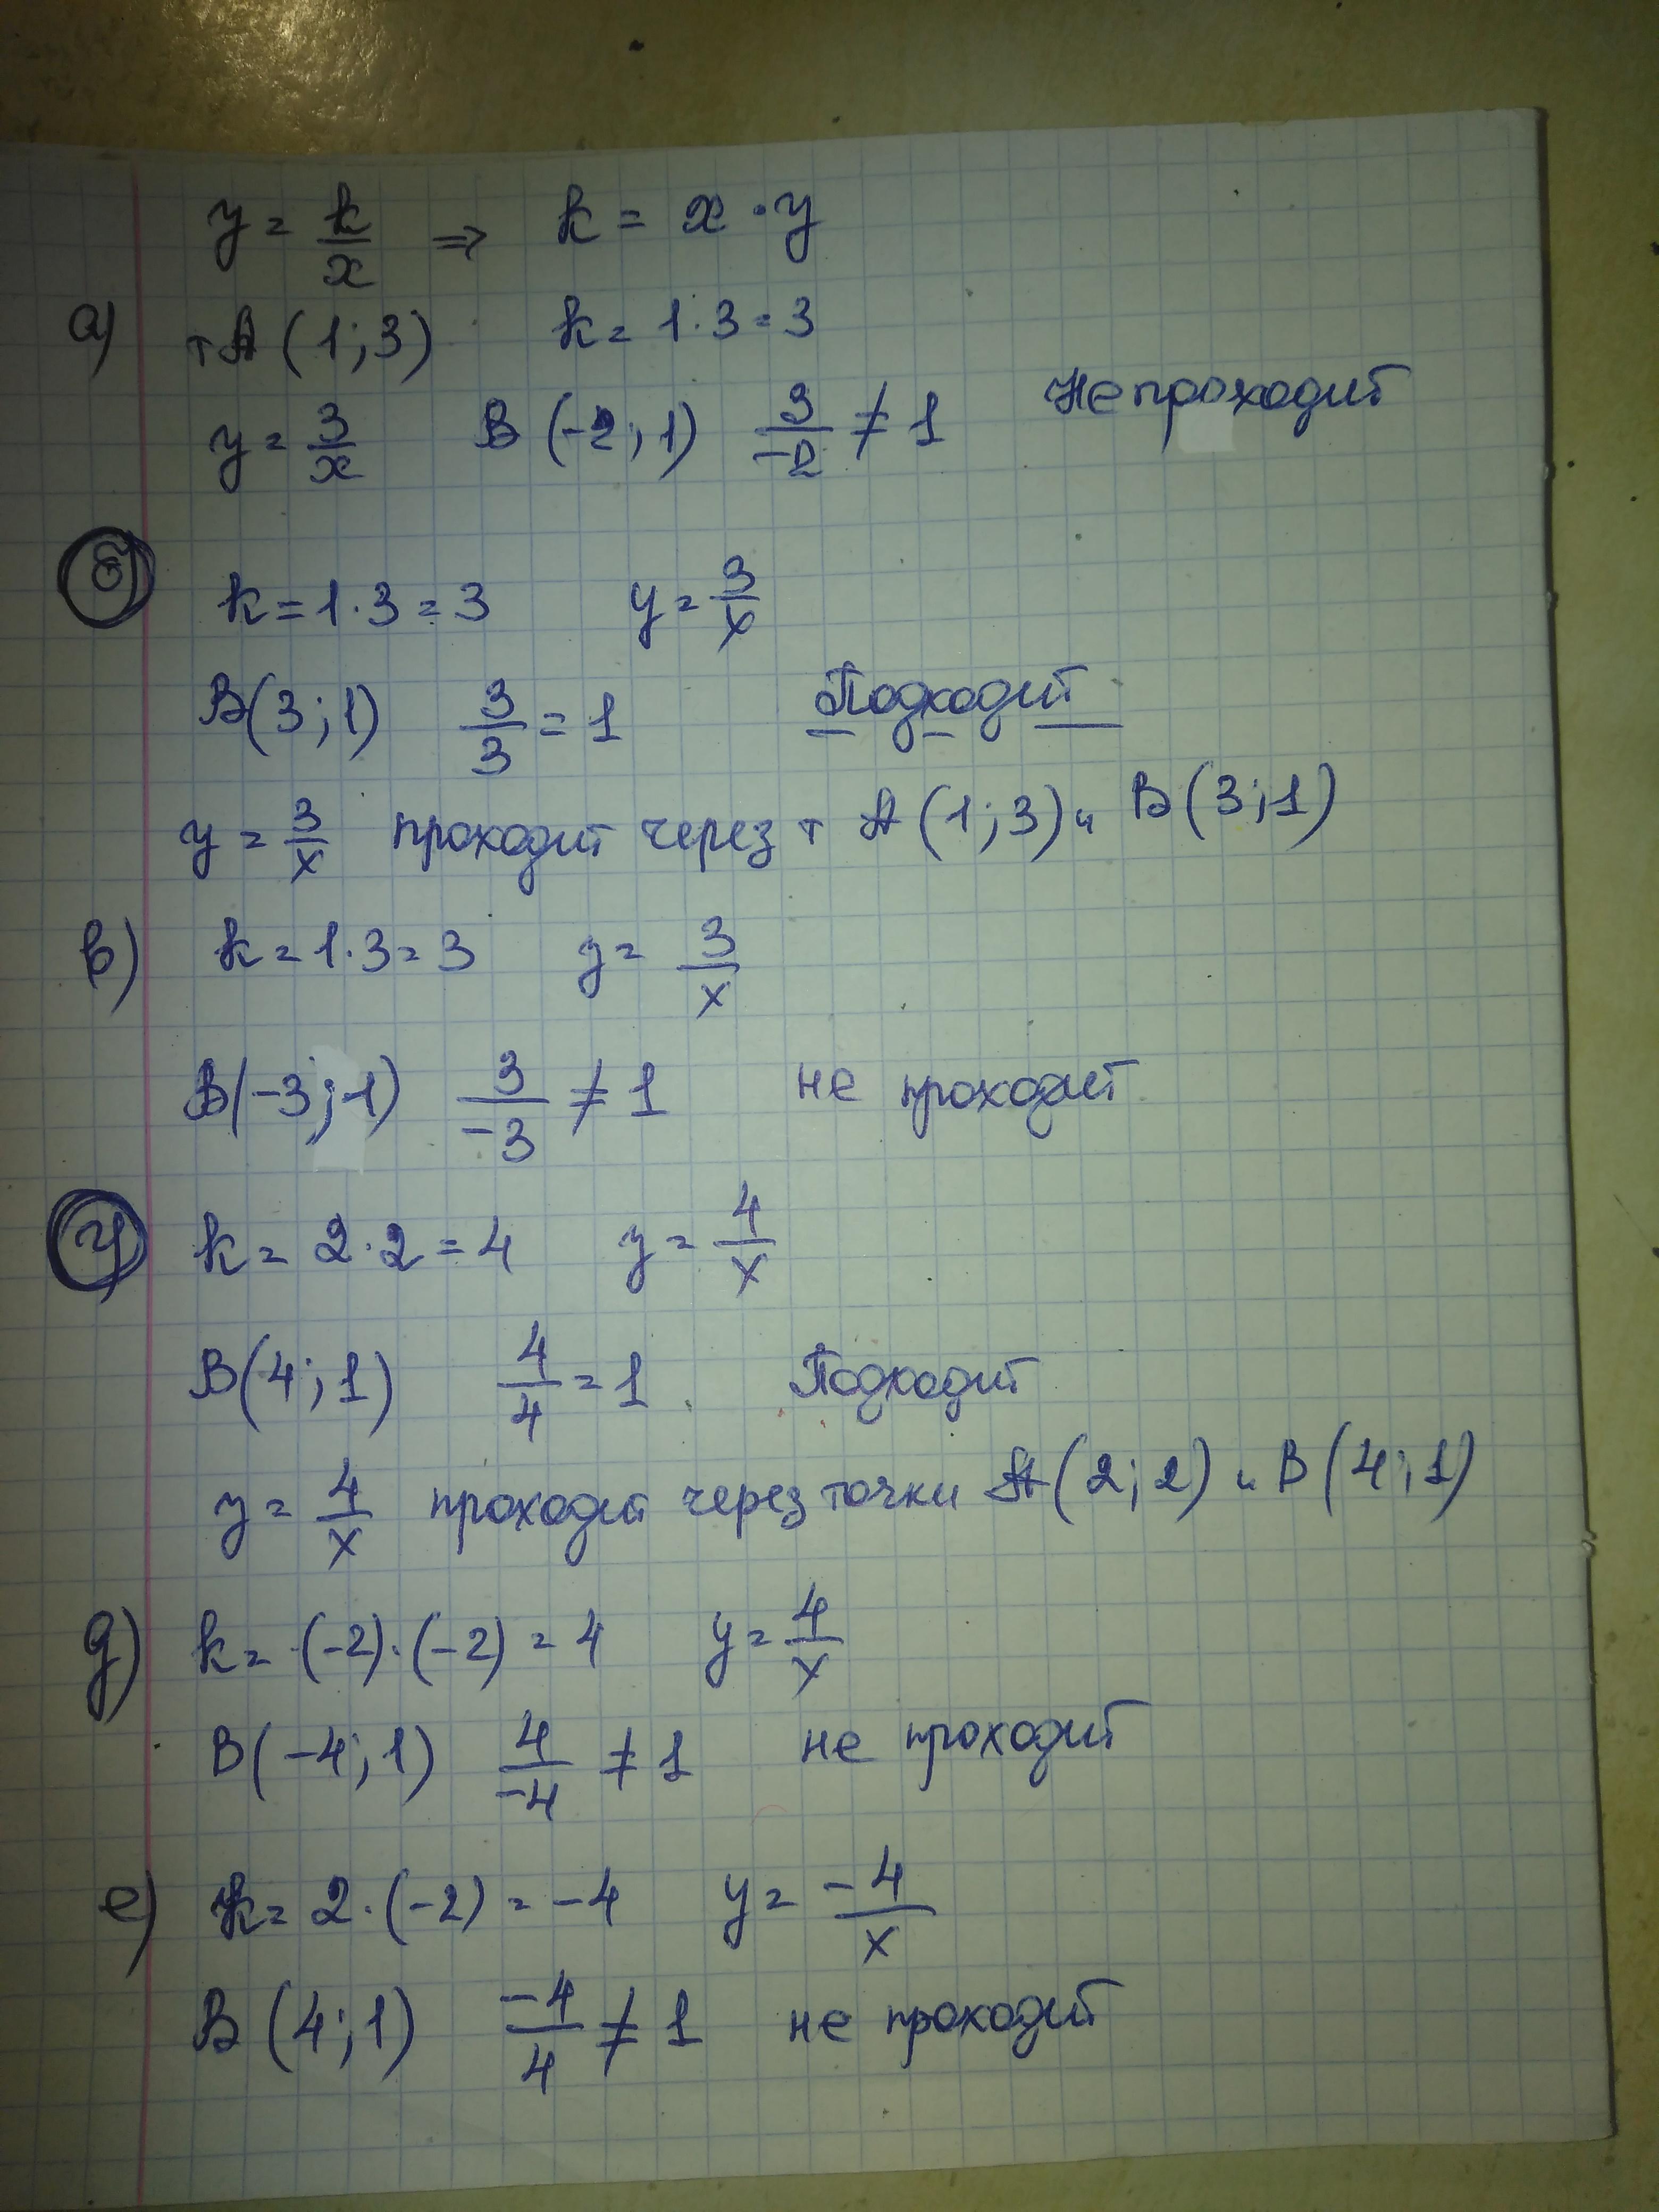 y = k/x ⇒ k = x · y
а) т A (1; 3) k = 1 · 3 = 3
y = 3/x B (-2; 1) 3/-2 ≠ 1 Не проходит
б) k = 1 · 3 = 3 y = 3/x
B(3; 1) 3/3 = 1 Подходит
y = 3/x проходит через т A (1; 3) и B (3; 1)
в) k = 1 · 3 = 3 y = 3/x
B(-3; 1) 3/-3 ≠ 1 не проходит
k = 2 · 2 = 4 y = 4/x
B(4; 1) 4/4 = 1 Подходит
y = 4/x проходит через точки A (2; 2) и B (4; 1)
д) k = (-2) · (-2) = 4 y = 4/x
B(-4; 1) 4/-4 ≠ 1 не проходит
е) k = 2 · (-2) = -4 y = -4/x
B (4; 1) -4/4 ≠ 1 не проходит